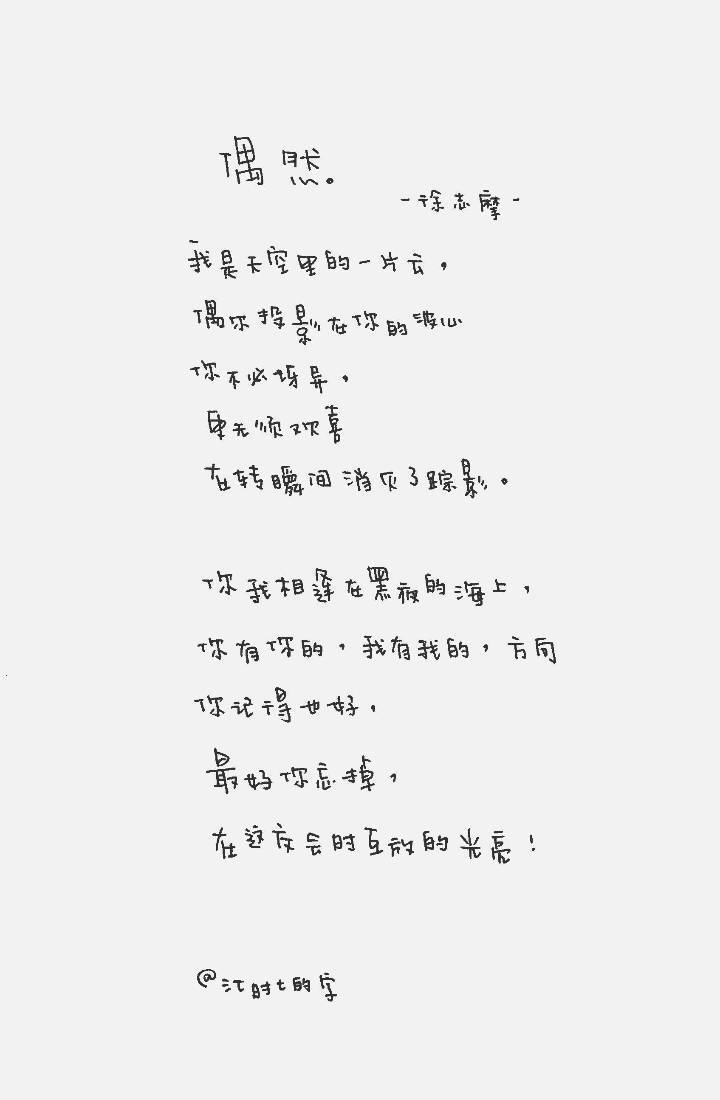 偶然。
-徐志摩-
我是天空里的一片云，
偶尔投影在你的波心
你不必讶异，
更无须欢喜
在转瞬间消灭了踪影。
你我相逢在黑夜的海上，
你有你的，我有我的，方向
你记得也好，
最好你忘掉，
在这交会时互放的光亮！
@江时t的字